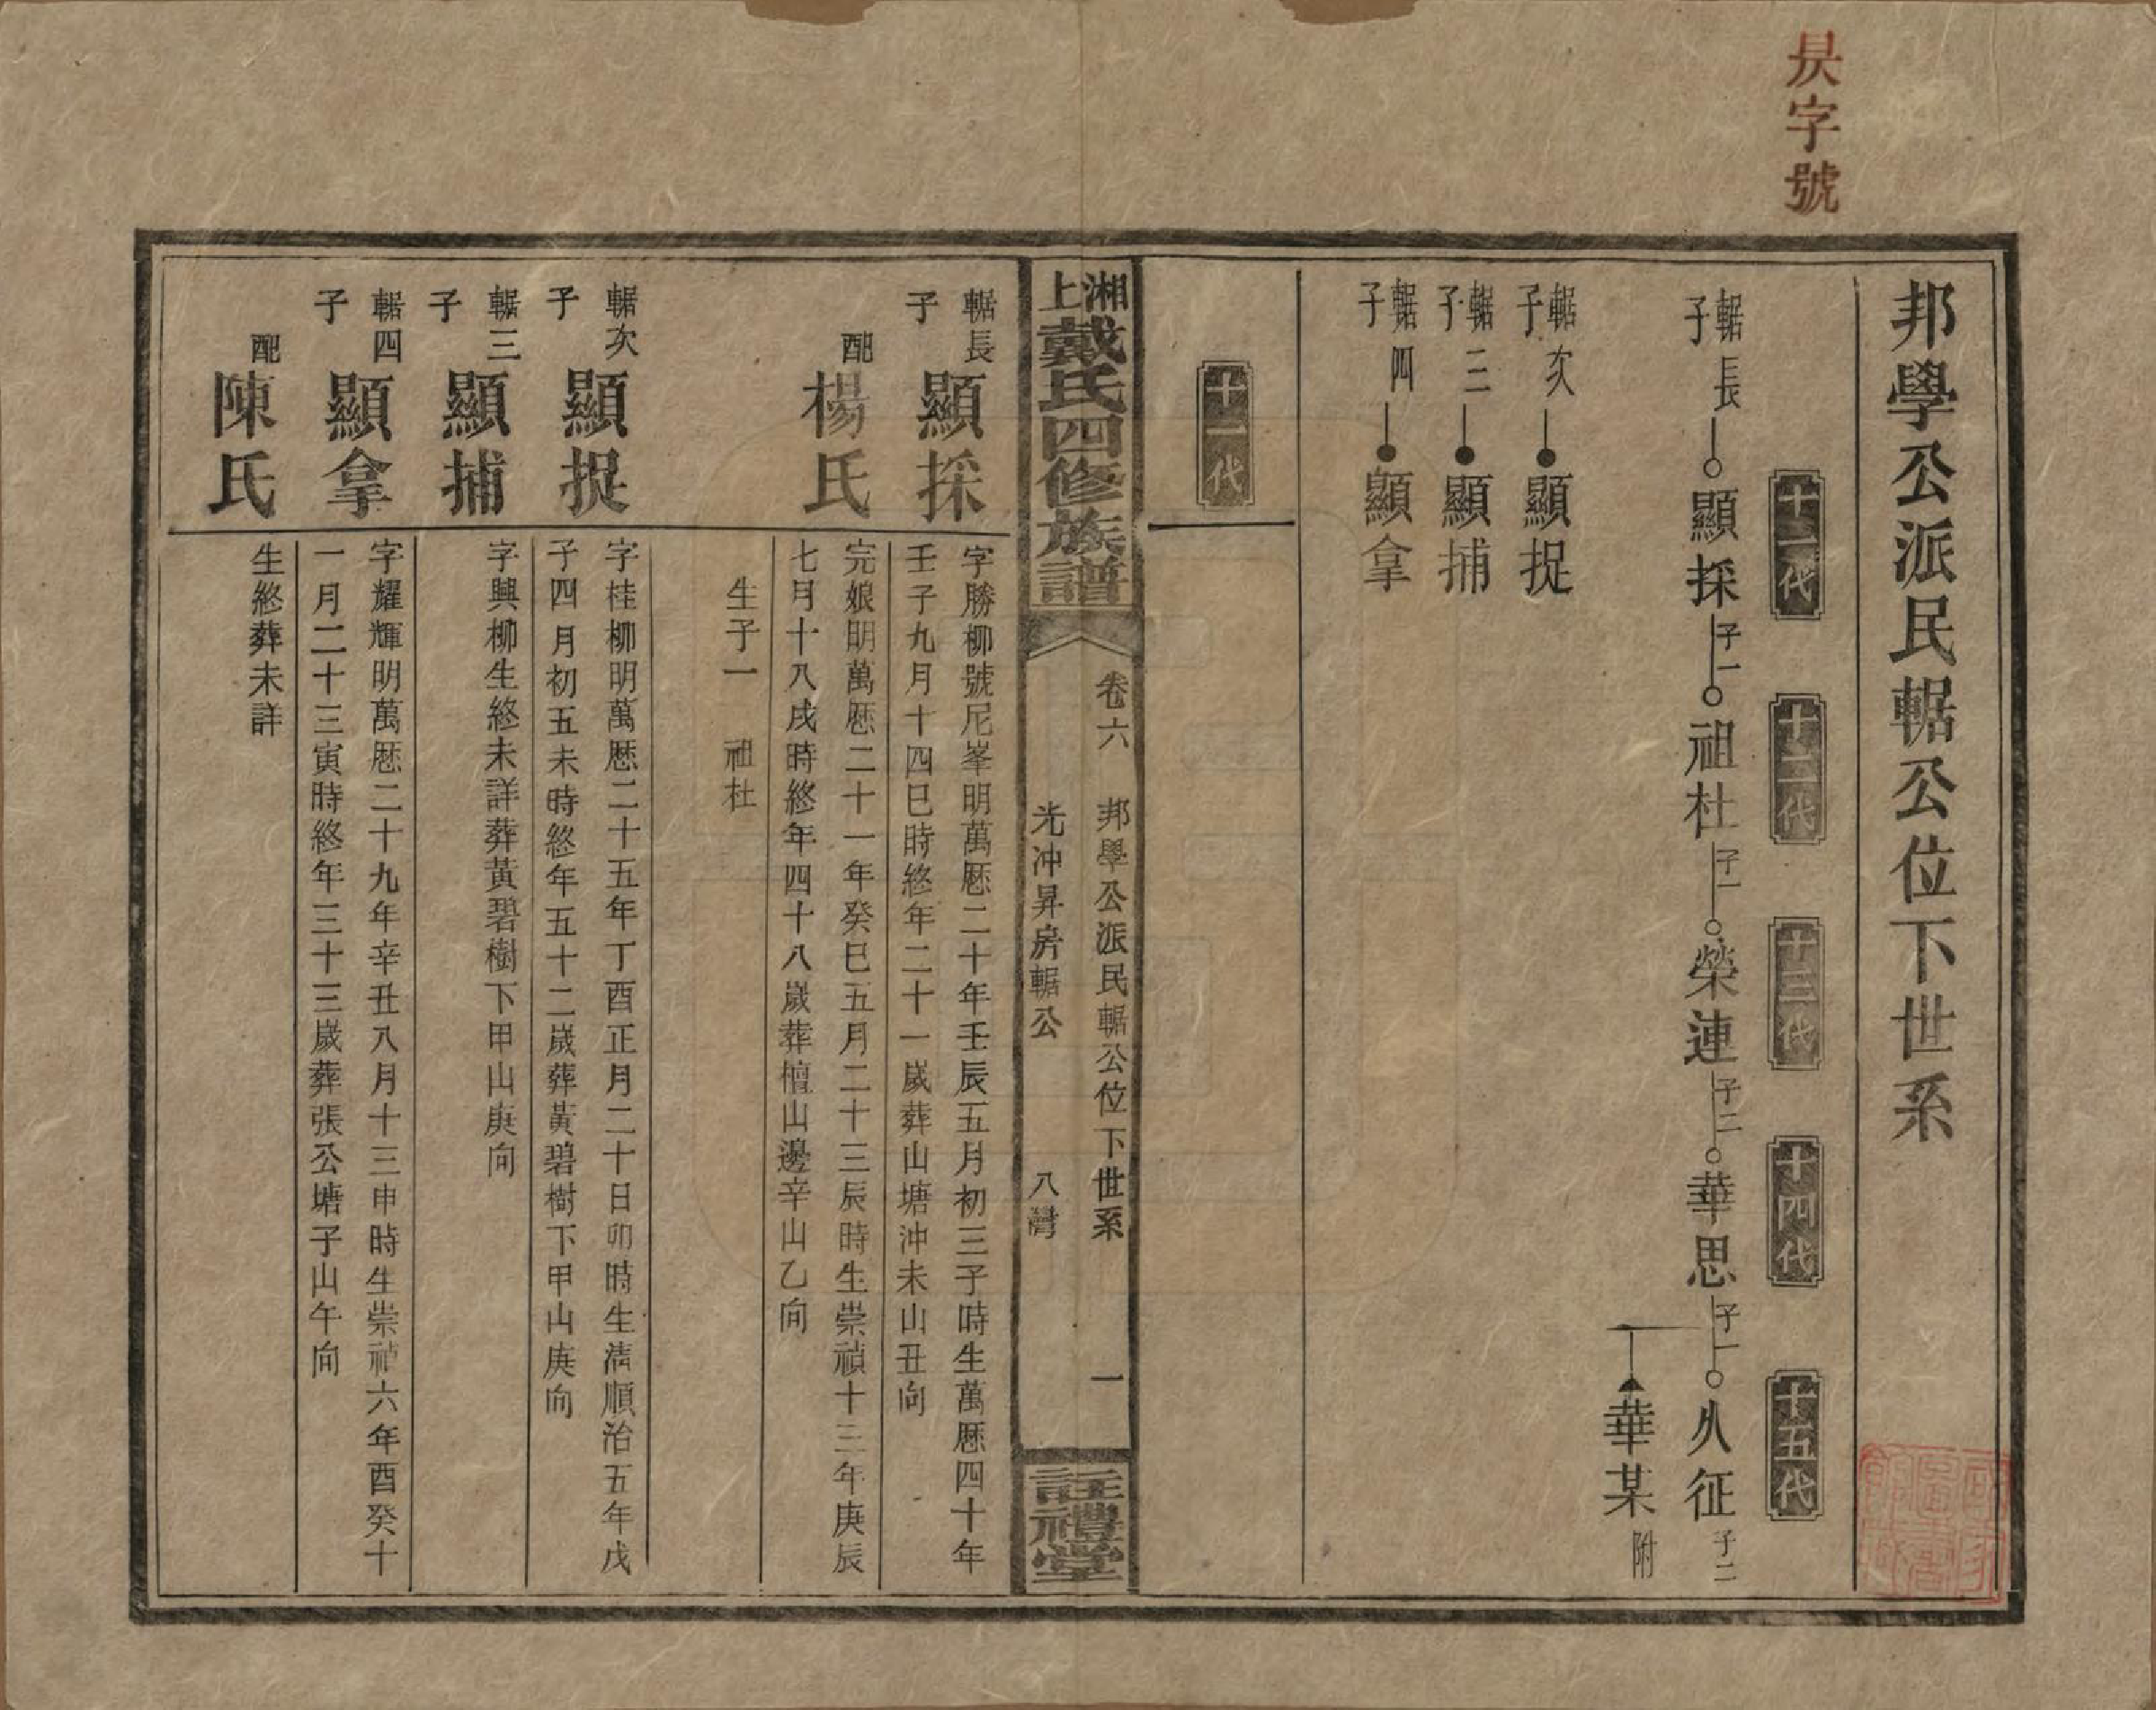 昃字號
邦學公派民輥公位下世系
十一代
十二代
十三代
十四代
十五代
輥長子 顯採 子一 祖杜 子一 榮連 子二 華思 子一 久征 子二
華某 附
輥次子 顯捉
輥三子 顯捕
輥四子 顯拿
十一代
湘上戴氏四修族譜
卷六 邦學公派民輥公位下世系 一
光冲昇房輥公 八灣
註禮堂
輥長子 顯採
字勝柳號尼峯明萬厯二十年壬辰五月初三子時生萬厯四十年
壬子九月十四巳時終年二十一歲葬山塘冲未山丑向
配 楊氏
完娘明萬厯二十一年癸巳五月二十三辰時生崇禎十三年庚辰
七月十八戌時終年四十八歲葬檀山邊辛山乙向
生子一 祖杜
輥次子 顯捉
字桂柳明萬厯二十五年丁酉正月二十日卯時生清順治五年戊
子四月初五未時終年五十二歲葬黃碧樹下甲山庚向
輥三子 顯捕
字興柳生終未詳葬黃碧樹下甲山庚向
輥四子 顯拿
字耀輝明萬厯二十九年辛丑八月十三申時生崇禎六年酉癸十
一月二十三寅時終年三十三歲葬張公塘子山午向
配 陳氏
生終葬未詳